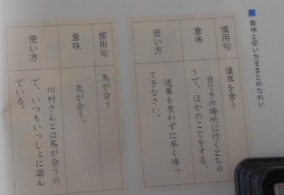 意味と使い方をまとめたれい
慣用句
道草を食う
意味
目てきの場所に行くとちゅ
うで、ほかのことをする。
使い方
道草を食わずに早く帰っ
てきなさい。
慣用句
馬が合う
意味
気が合う。
使い方
川村さんとは馬が合うの
で、いつもいっしょに遊ん
でいる。